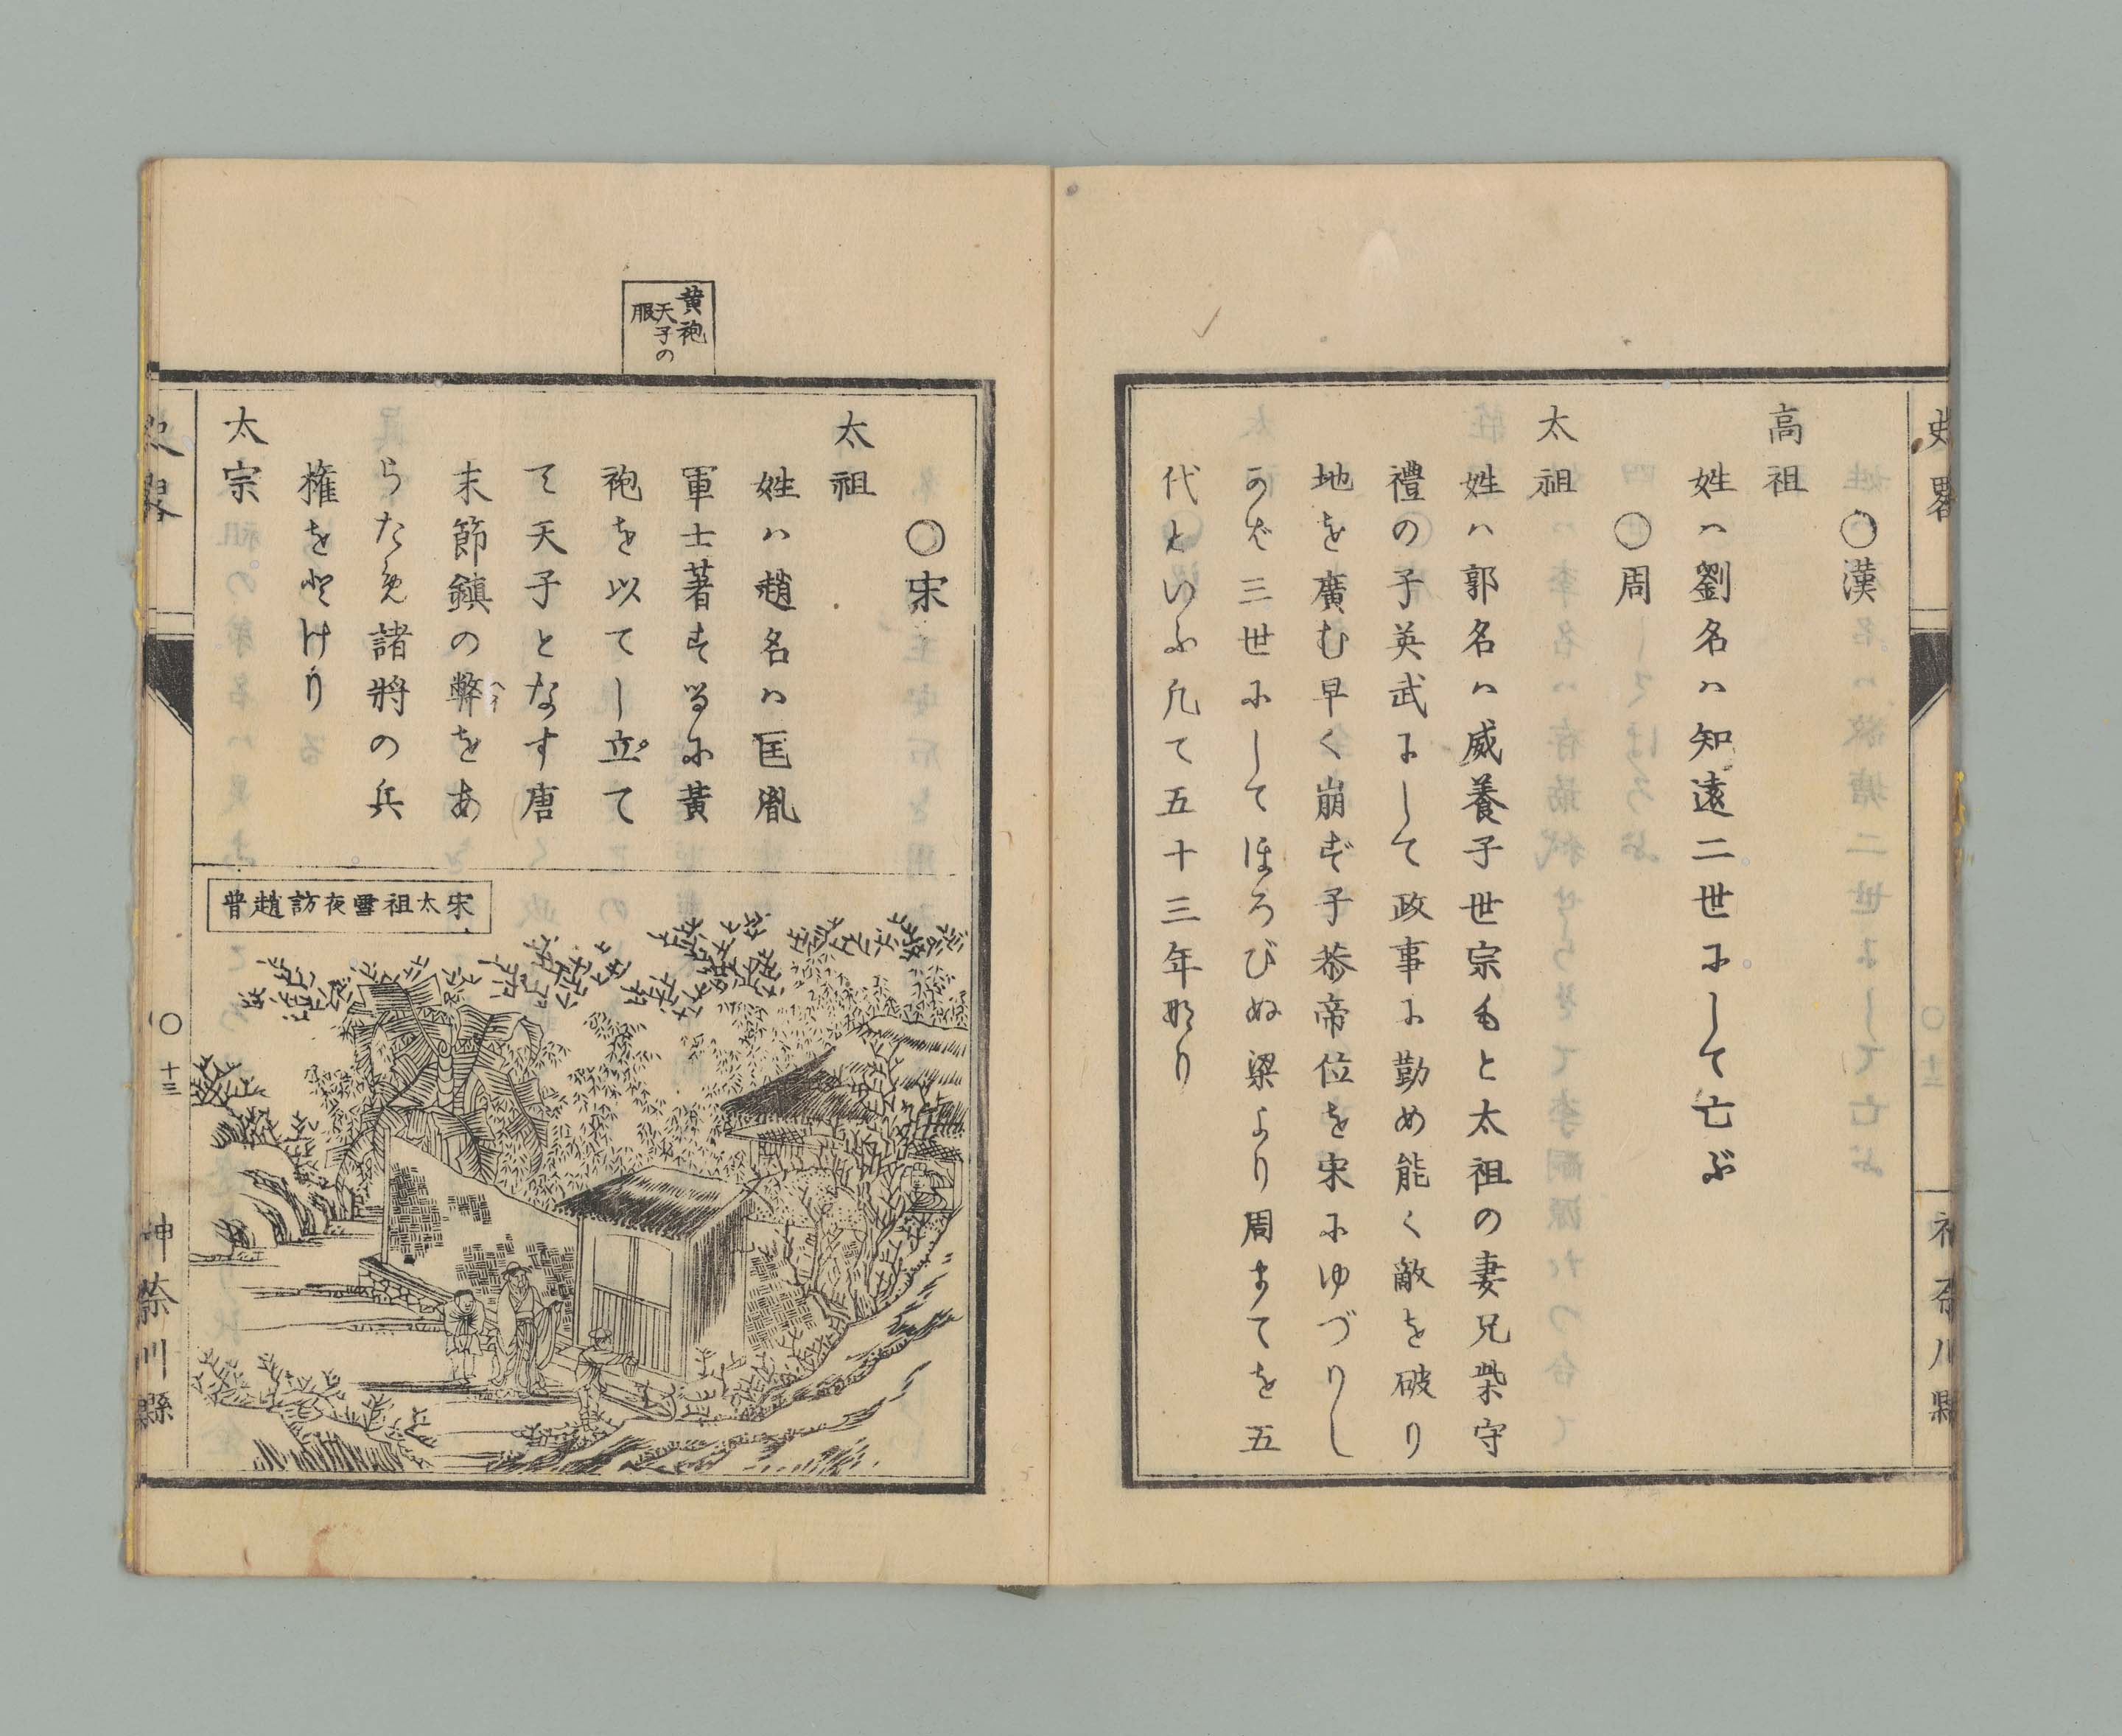 史畧
神奈川縣
〇漢
高祖
姓ハ劉名ハ知遠二世にして亡ぶ
〇周
太祖
姓ハ郭名ハ威養子世宗もと太祖の妻兄柴守
禮の子英武にして政事に勤め能く敵を破り
地を廣む早く崩ず子恭帝位を宋にゆづりし
かば三世にしてほろびぬ梁より周までを五
代といふ凡て五十三年なり
黄袍
天子の
服
〇宋
太祖
姓ハ趙名ハ匡胤
軍士著するに黄
袍を以てし立て
て天子となす唐
末節鎮の弊をあ
ヘイ
らため諸將の兵
権をとけり
太宗
宋太祖雪夜訪趙普
史畧
〇十三
神奈川縣